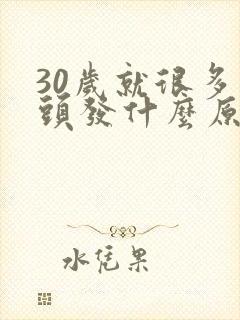 30歲就很多
頭發什麼原
水凭果